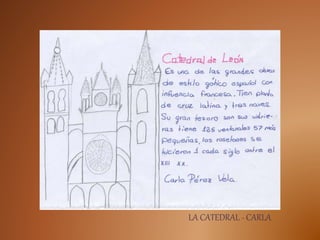 Catedral de León
Es una de las grandes obras
de estilo gótico español con
influencia francesa. Tien planta
de cruz latina y tres naves.
Su gran tesoro son sus vidrie-
ras tiene 125 ventanales 57 más
pequeñas, los rosetones se
hicieron 1 cada siglo entre el
XIII XX.
Carla Pérez Vela
LA CATEDRAL - CARLA